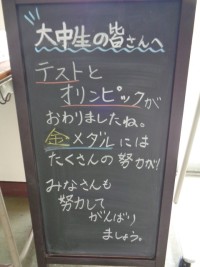 大中生の皆さんへ
テストと
オリンピックが
おわりましたね。
金メダルには
たくさんの努力が!
みなさんも
努力して
がんばり
ましょう。